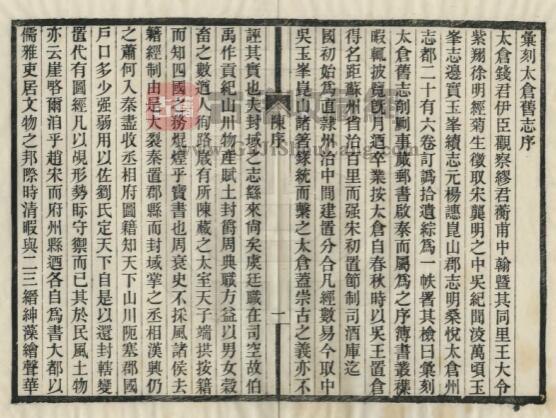 彙刻太倉舊志序
太倉錢君伊臣觀察繆君蘅甫中翰暨其同里王大令
紫翔徐明經菊生徵取宋龔明之中吳紀聞淩萬頃玉
峯志邊實玉峯續志元楊譓崑山郡志明桑悅太倉州
志都二十有六卷訂譌拾遺綜為一帙署其檢曰彙刻
太倉舊志剞劂事蕆郵書啟泰而屬為之序簿書叢襍
暇輒披覽旣洒卒業按太倉自春秋時以吳王置倉
得名距蘇州省治百里而强宋初置節制司酒庫迄
國初始為直隸州治中間建置分合凡經數易今取中
吳玉峯崑山諸舊錄統而繫之太倉蓋崇古之義亦不
陳序
一
誣其實也夫封域之志繇來尙矣虞廷職在司空故伯
禹作貢紀山川物產賦土封爵周典職方益以男女穀
畜之數遒人徇路厥有所陳藏之太室天子端拱按籍
而知四國之務焜煌乎寶書也周衰史不採風諸侯去
籍經制由是大裂秦置郡縣而封域掌之丞相漢興仍
之蕭何入秦盡收丞相府圖籍知天下山川阨塞郡國
戶口多少强弱用以佐劉氏定天下自是以還封轄變
置代有圖經凡以覘形勢眎守禦而已其於民風土物
亦云崖略爾洎乎趙宋而府州縣迺各自為書大都以
儒雅吏居文物之邦際時清暇與二三縉紳藻繪聲華